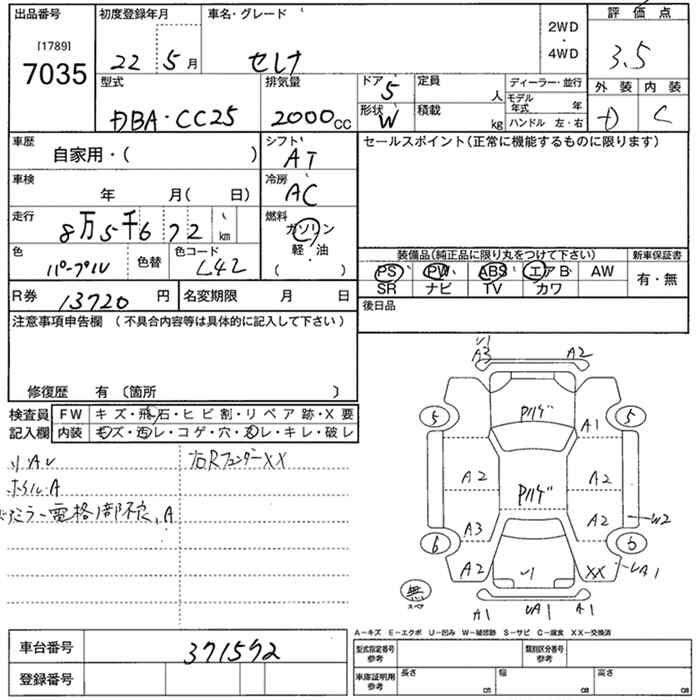 出品番号 初度登録年月 車名・グレード 評価点
[1789]
7035 22年 5月 セレナ 2WD・4WD 3.5
型式 排気量 ドア 5 定員 人 ディーラー・並行 外装 内装
DBA・CC25 2000cc 形状 W 積載 kg モデル年式 年 D C
ハンドル 左・右
車歴 自家用・( ) シフト AT セールスポイント(正常に機能するものに限ります)
車検 年 月( 日) 冷房 AC
走行 8万5千672 km 燃料 ガソリン・軽・油 ( )
色 パープル 色替 色コード L42 装備品(純正品に限り丸をつけて下さい) 新車保証書
PS PW ABS エアB AW 有・無
SR ナビ TV カワ
R券 13720円 名変期限 月 日 後日品
注意事項申告欄 (不具合内容等は具体的に記入して下さい)
修復歴 有 〔箇所 〕
検査員 FW キズ・飛石・ヒビ割・リペア跡・X要
記入欄 内装 キズ・汚レ・コゲ・穴・スレ・キレ・破レ
右Rフェンダー XX
ホイル A
ミラー電格1部不良、A
A3 A2
5 Pハゲ A1 5
A2 Pハゲ A2
A3 A2 W2
6 6
A2 XX UA1
無
スペア
A1 UA1 A1
A−キズ E−エクボ U−凹ミ W−補修跡 S−サビ C−腐食 XX−交換済
車台番号 371572 型式指定番号 参考 類別区分番号 参考
登録番号 車庫証明用 参考 長さ cm 幅 cm 高さ cm